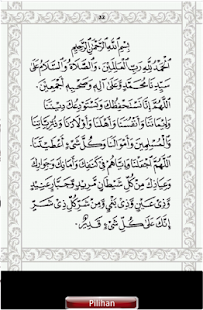 ٣٢
بِسْمِ اللَّهِ الرَّحْمَٰنِ الرَّحِيمِ
اَلْحَمْدُ لِلَّهِ رَبِّ الْعَالَمِيْنَ، وَالصَّلَاةُ وَالسَّلَامُ عَلَى
سَيِّدِنَا مُحَمَّدٍ وَعَلَى آلِهِ وَصَحْبِهِ أَجْمَعِيْنَ.
اَللَّهُمَّ إِنَّا نَسْتَحْفِظُكَ وَنَسْتَوْدِعُكَ دِيْنَنَا
وَإِيْمَانَنَا وَأَنْفُسَنَا وَأَهْلَنَا وَأَوْلَادَنَا وَذُرِّيَّاتِنَا
وَالْمُسْلِمِيْنَ وَأَمْوَالَنَا وَكُلَّ شَيْءٍ أَعْطَيْتَنَا.
اَللَّهُمَّ اجْعَلْنَا وَإِيَّاهُمْ فِي كَنَفِكَ وَأَمَانِكَ وَجِوَارِكَ
وَعِيَاذِكَ مِنْ كُلِّ شَيْطَانٍ مَرِيْدٍ وَجَبَّارٍ عَنِيْدٍ
وَذِيْ عَيْنٍ وَذِيْ بَغْيٍ وَمِنْ شَرِّ كُلِّ ذِيْ شَرٍّ
إِنَّكَ عَلَى كُلِّ شَيْءٍ قَدِيْرٌ.
Pilihan